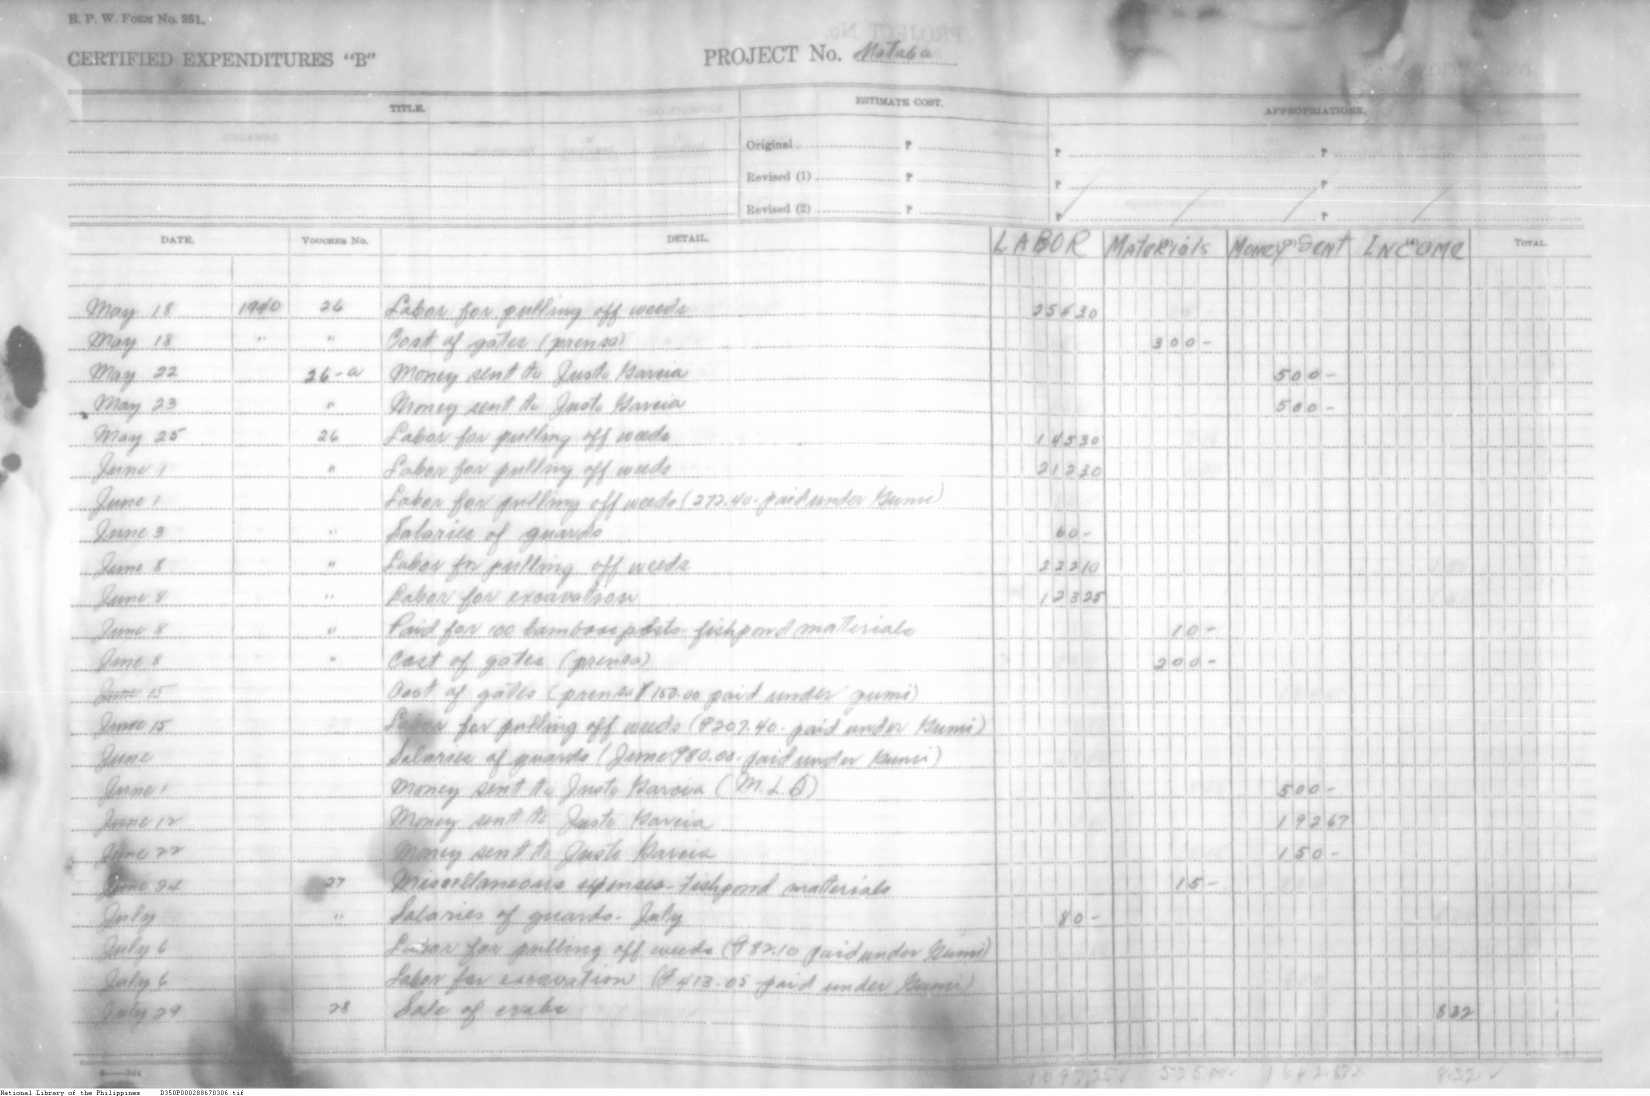 B. P. W. FORM No. 251.
CERTIFIED EXPENDITURES "B"
PROJECT No. Mataba
TITLE. ESTIMATE COST. APPROPRIATIONS.
Original ₱ ₱ ₱
Revised (1) ₱ ₱ ₱
Revised (2) ₱ ₱ ₱
DATE. VOUCHER No. DETAIL. LABOR Materials Money Sent INCOME TOTAL.
May 18 1940 26 Labor for pulling off weeds 25630
May 18 " " Cost of gates (prensa) 300-
May 22 26-a Money sent to Justo Garcia 500-
May 23 " Money sent to Justo Garcia 500-
May 25 26 Labor for pulling off weeds 14530
June 1 " Labor for pulling off weeds 21230
June 1 Labor for pulling off weeds (272.40- paid under Gumi)
June 3 " Salaries of guards 60-
June 8 " Labor for pulling off weeds 22210
June 8 " Labor for excavation 12325
June 8 " Paid for 100 bamboo posts- fishpond materials 10-
June 8 " Cost of gates (prensa) 200-
June 15 Cost of gates (prensa ₱150.00 paid under gumi)
June 15 Labor for pulling off weeds (₱207.40- paid under Gumi)
June Salaries of guards (June ₱80.00- paid under Gumi)
June 1 Money sent to Justo Garcia (M.L.Q)
500-
June 12 Money sent to Justo Garcia 19267
June 22 Money sent to Justo Garcia 150-
June 24 27 Miscellaneous expenses- Fishpond materials 15-
July " Salaries of guards- July 80-
July 6 Labor for pulling off weeds (₱82.10 paid under Gumi)
July 6 Labor for excavation (₱413.05 paid under Gumi)
July 29 28 Sale of crabs 832
109925 525 184267 832
National Library of the Philippines D350P000288670306.tif